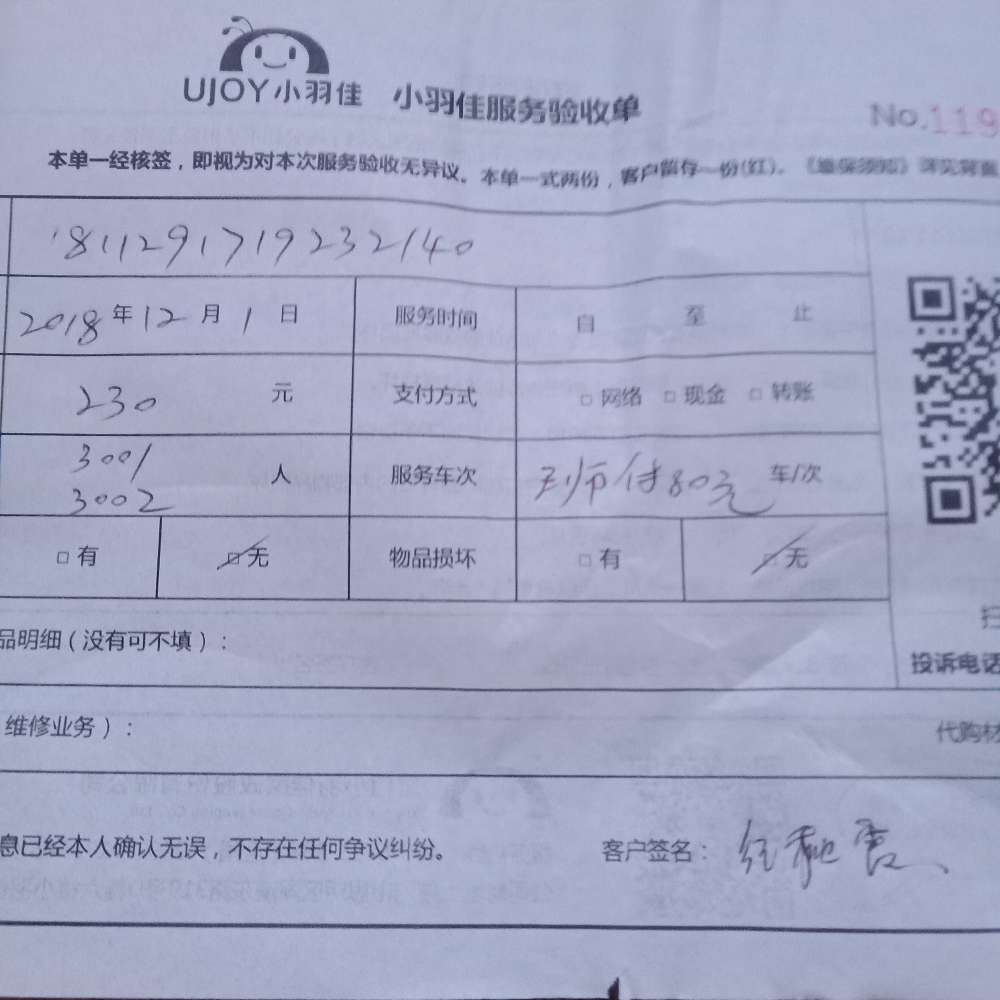 UJOY小羽佳 小羽佳服务验收单
No.119
本单一经核签，即视为对本次服务验收无异议。本单一式两份，客户留存一份(红)。《维保须知》详见背面
1811291719232140
2018年12月1日 服务时间 自 至 止
230 元 支付方式 □网络 □现金 □转账
3001
3002 人 服务车次 付80元 车/次
□有 □无 物品损坏 □有 □无
品明细（没有可不填）：
扫
投诉电话
维修业务）：
代购材
息已经本人确认无误，不存在任何争议纠纷。 客户签名：